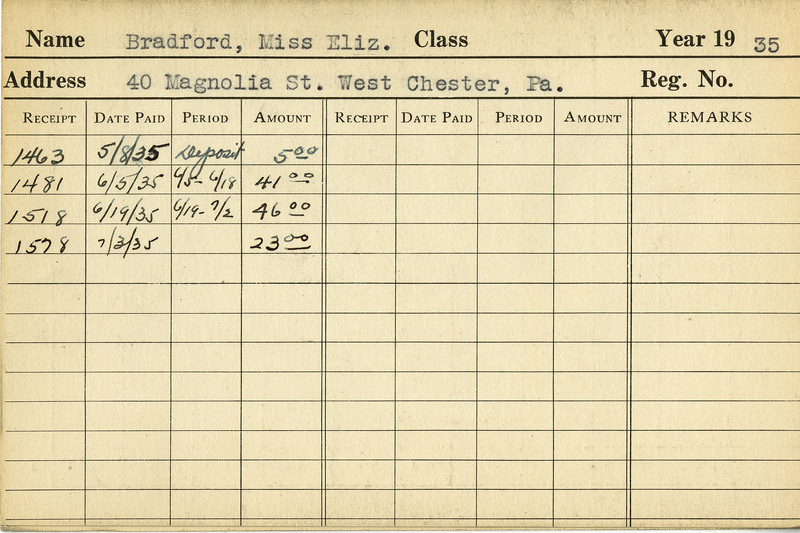 Name Bradford, Miss Eliz. Class Year 19 35
Address 40 Magnolia St. West Chester, Pa. Reg. No.
RECEIPT DATE PAID PERIOD AMOUNT RECEIPT DATE PAID PERIOD AMOUNT REMARKS
1463 5/8/35 Deposit 5 00
1481 6/5/35 6/5 - 6/18 41 00
1518 6/19/35 6/19 - 7/2 46 00
1578 7/3/35 23 00